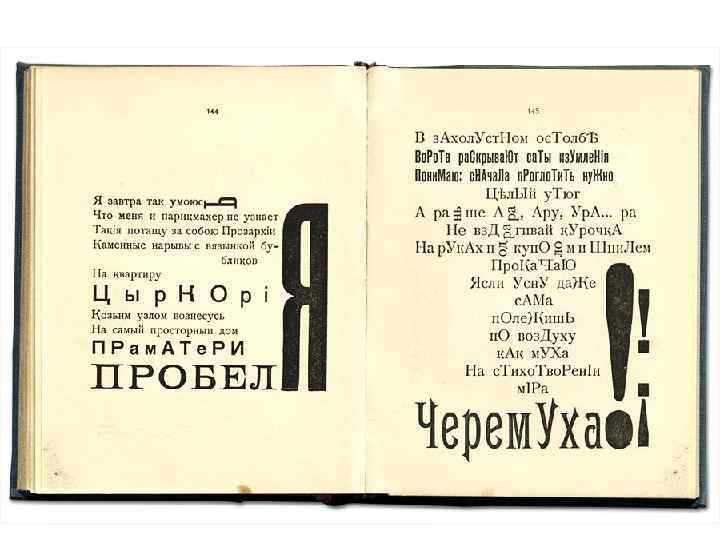 144
Я завтра так умоюсь
Что меня и парикмахер не узнает
Такія потащу за собою Прозархіи
Каменные нарывы с вязынкой бу-
бликов
На квартиру
ЦырКОрі
Козьим узлом вознесусь
На самый просторный дом
ПРам.АТе.РИ
ПРОБЕЛ
Я
145
В з.Ахол.Уст.Ном ос.Толб.Ѣ
Во.Ро.Та ра.Скрыва.Ют са.Ты из.Умле.Нія
Пони.Маю: с.НАча.Ла п.Рогло.Ти.Ть ну.Жно
Цѣл.Ый у.Тюг
А ра ше А Ару, Ур.А... ра
Не вз.Д гивай к.Урочк.А
На р.Ук.Ах п куп.О м и Шпи.Лем
Про.Ка.Ча.Ю
Ясли Усн.У да.Же
с.АМа
п.Оле.Жишь
п.О воз.Духу
к.Ак м.УХа
На с.Тихо.Тво.Рен.Іи
м.ІРа
Черем.Уха
!¡